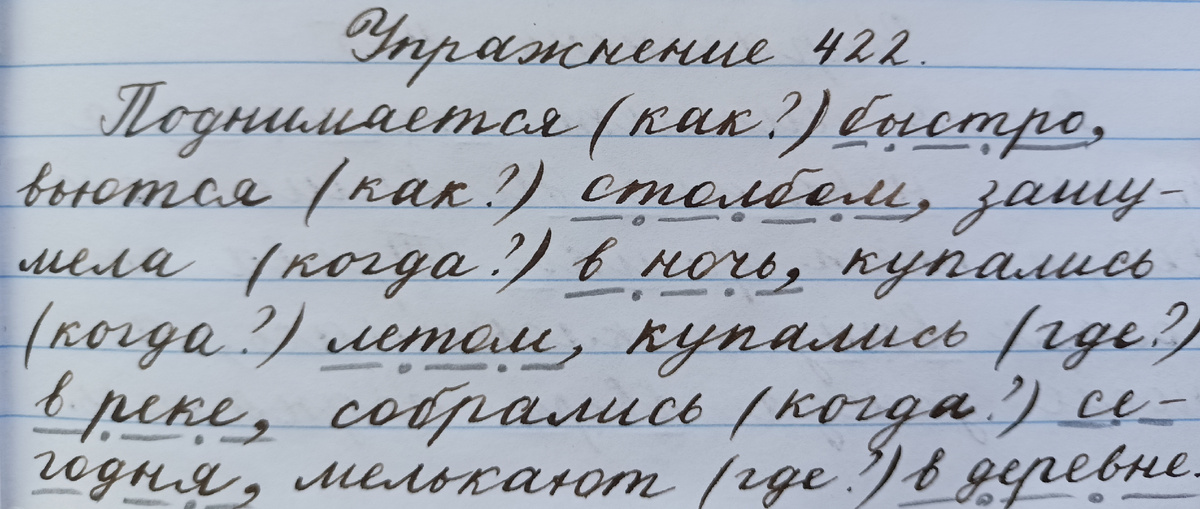 Упражнение 422.
Поднимается (как?) быстро,
вьются (как?) столбом, зашу-
мела (когда?) в ночь, купались
(когда?) летом, купались (где?)
в реке, собрались (когда?) се-
годня, мелькают (где?) в деревне.